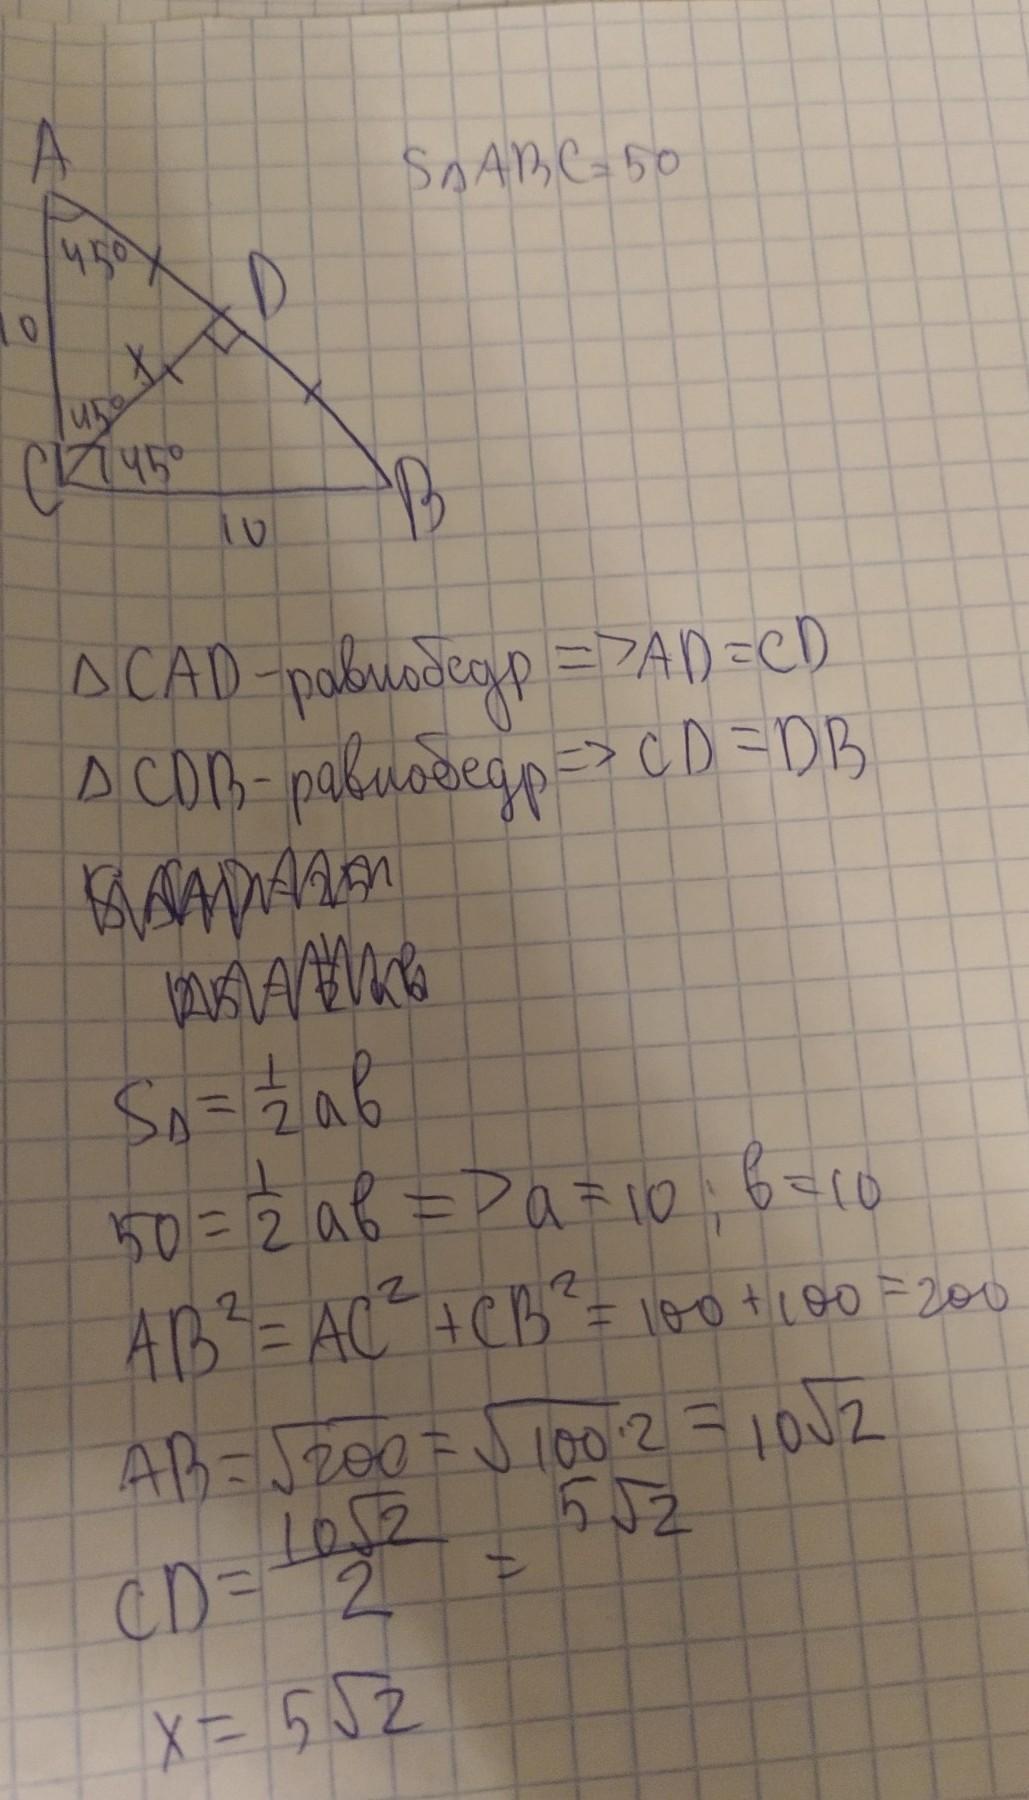 A
S△ABC=50
45°
D
10
x
45°
C
45°
B
10
△CAD-равнобедр=>AD=CD
△CDB-равнобедр=>CD=DB
S△=1/2 ab
50=1/2 ab=>a=10; b=10
AB²=AC²+CB²=100+100=200
AB=√200=√100·2=10√2
CD=10√2/2=5√2
x=5√2